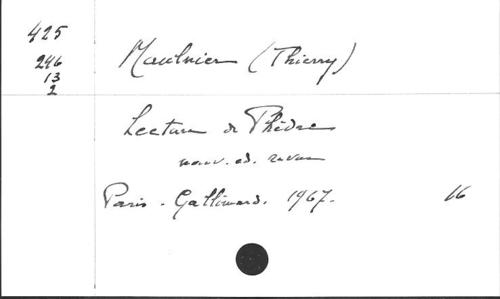 425
246
13
2
Maulnier (Thierry)
Lecture de Phèdre
nouv. ed. revue
Paris. Gallimard. 1967. 16